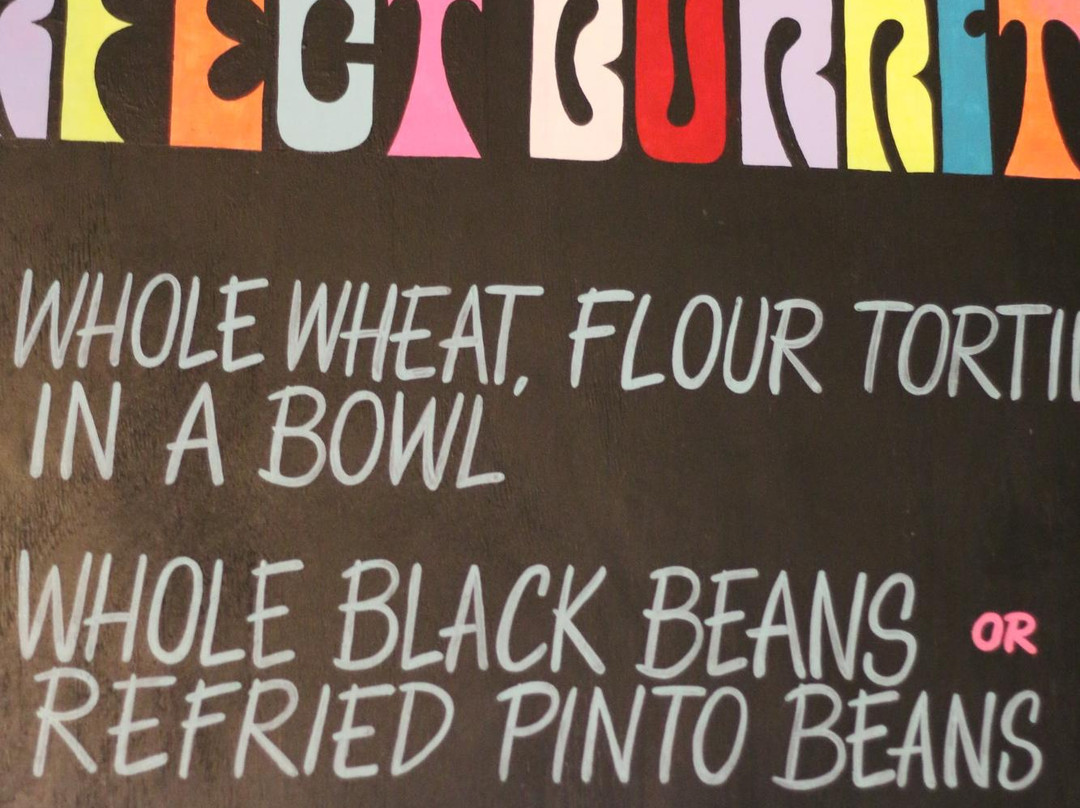 RFECT BURRIT
WHOLE WHEAT, FLOUR TORTIL
IN A BOWL
WHOLE BLACK BEANS OR
REFRIED PINTO BEANS